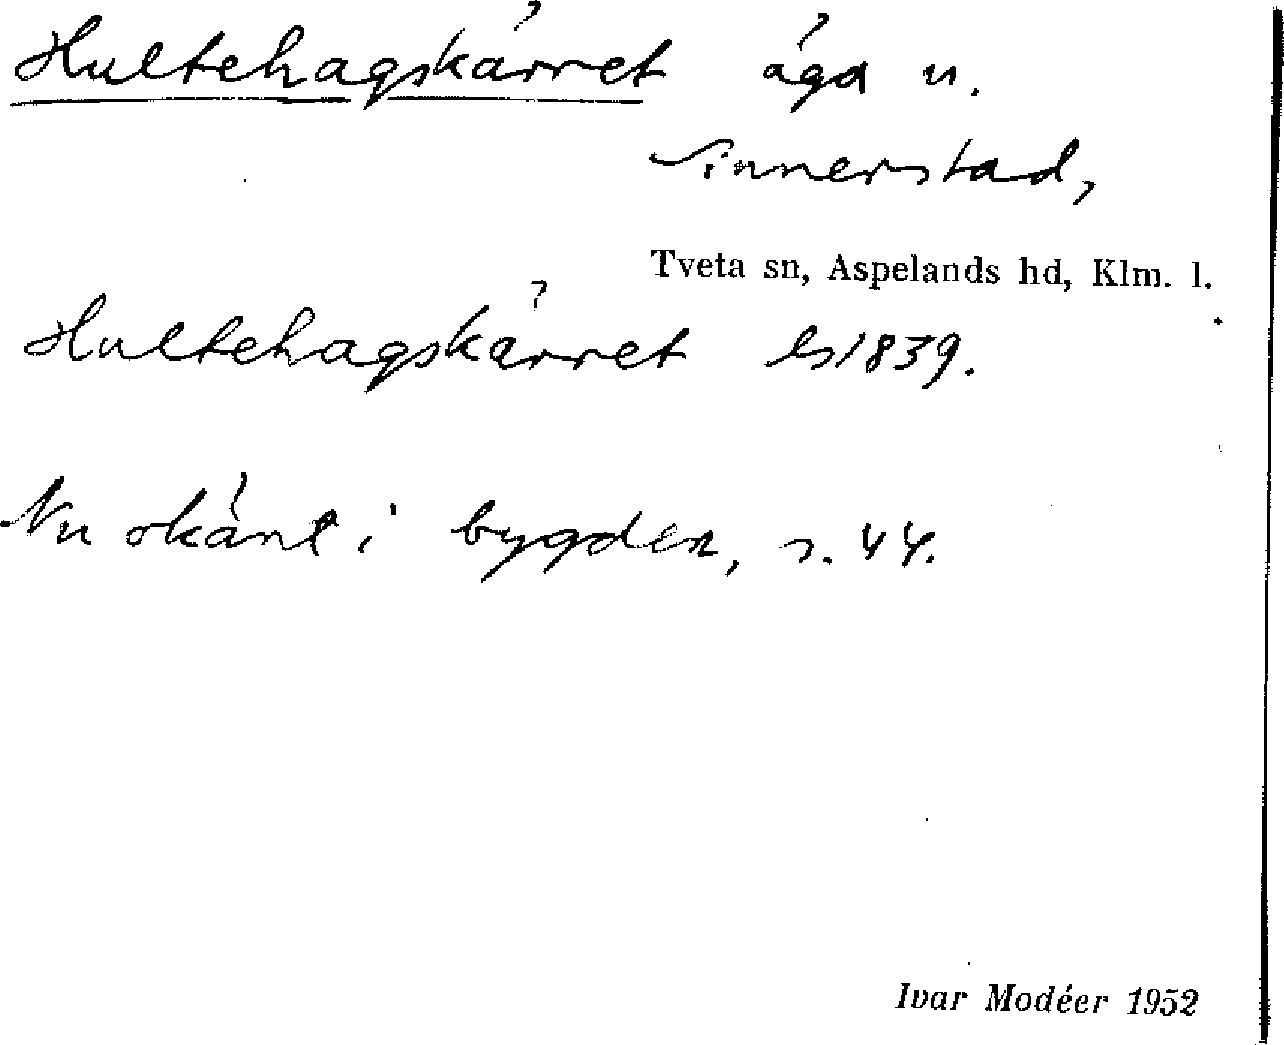 Hultehagskärret äga u.
Sinnerstad,
Tveta sn, Aspelands hd, Klm. l.
Hultehagskärret ls 1839.
Nu okänt i bygden, s. 44.
Ivar Modéer 1952